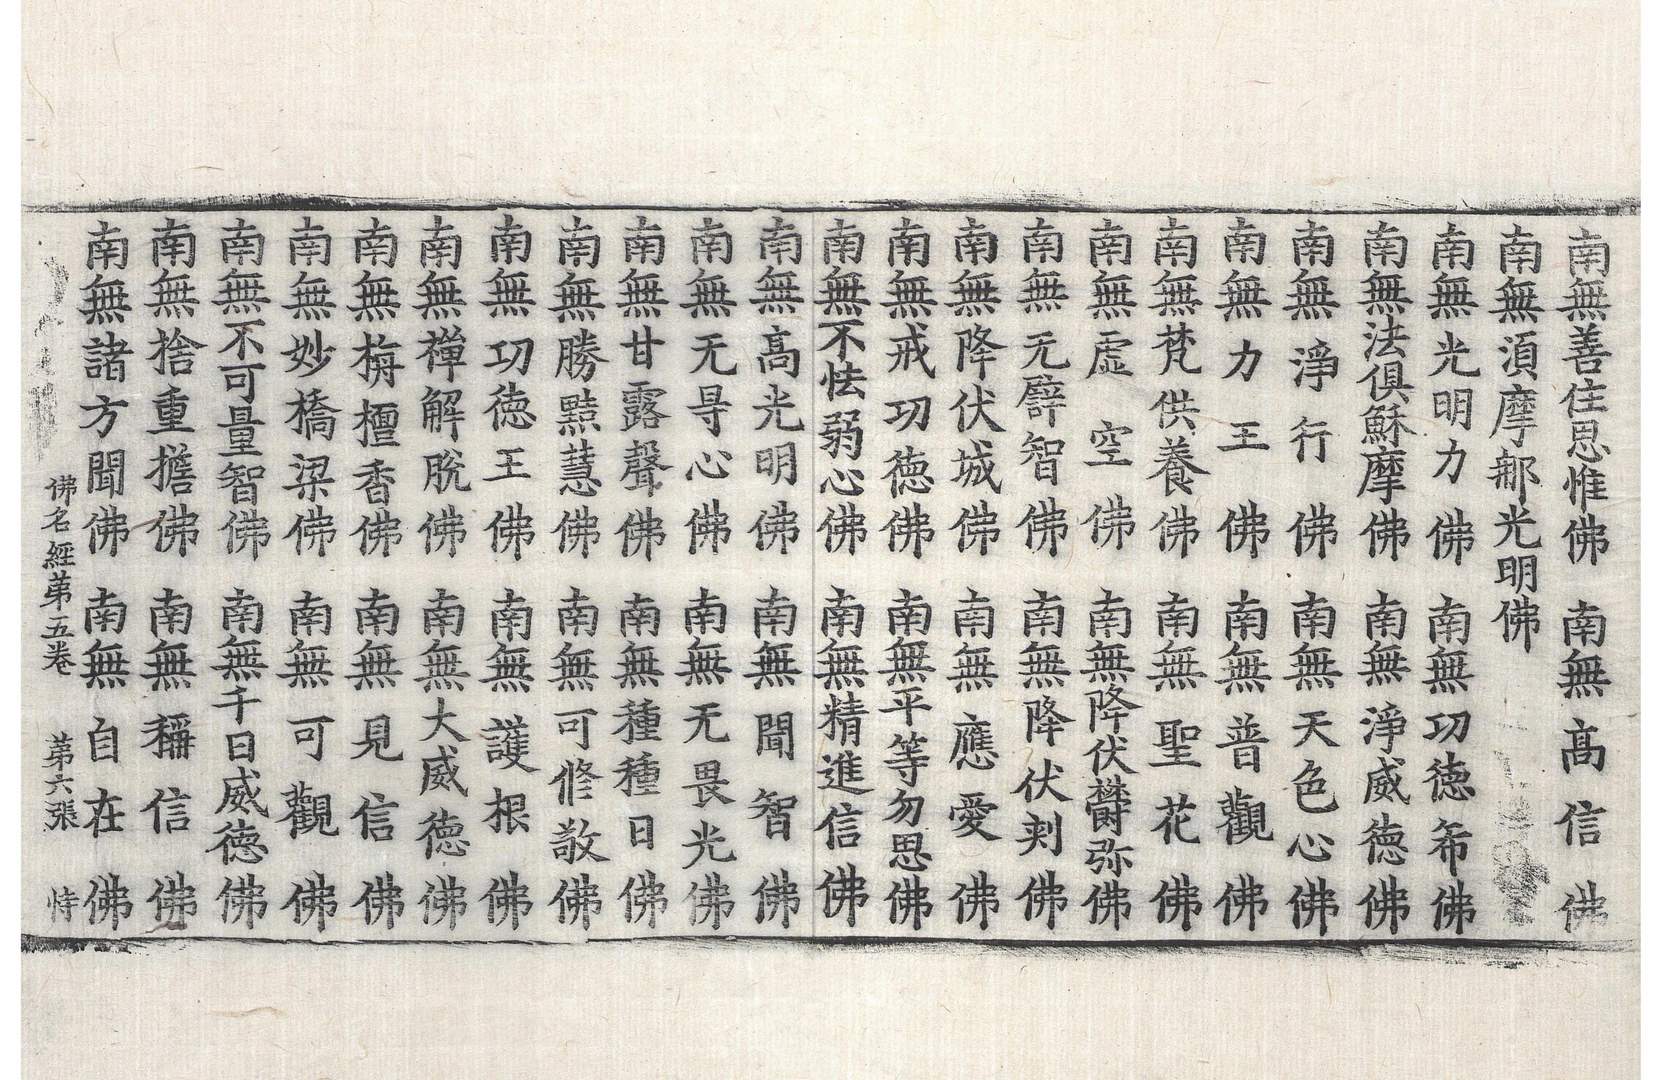 南無善住思惟佛　南無高信佛
南無湏摩𨚗光明佛
南無光明力佛　南無功德希佛
南無法俱穌摩佛　南無淨威德佛
南無淨行佛　南無天色心佛
南無力王佛　南無普觀佛
南無梵供養佛　南無聖花佛
南無虛空佛　南無降伏欝弥佛
南無无礕智佛　南無降伏刾佛
南無降伏城佛　南無應愛佛
南無戒功德佛　南無平等勿思佛
南無不怯弱心佛　南無精進信佛
南無高光明佛　南無聞智佛
南無无㝵心佛　南無无畏光佛
南無甘露聲佛　南無種種日佛
南無勝黠慧佛　南無可修敬佛
南無功德王佛　南無護根佛
南無禪解脫佛　南無大威德佛
南無栴檀香佛　南無見信佛
南無妙橋梁佛　南無可觀佛
南無不可量智佛　南無千日威德佛
南無捨重擔佛　南無稱信佛
南無諸方聞佛　南無自在佛
佛名經苐五卷　苐六張　恃